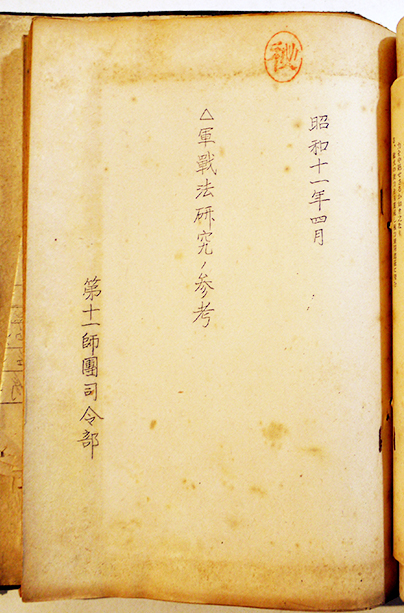 ㊙
昭和十一年四月
△軍戰法研究ノ参考
第十一師團司令部